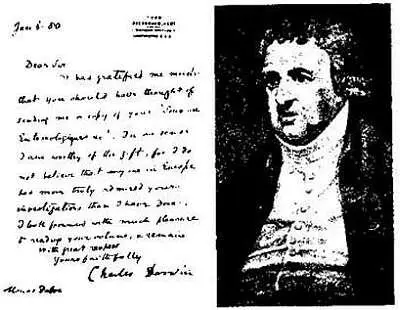 Jan 6. 80
Dear Sir
has gratified me much
that you should have thought of
sending me a copy of your "Souvenirs
Entomologiques". In one sense
I am worthy of the gift, for I do
not believe that any one in Europe
has more truly admired your
investigations than I have done.
I look forward with much pleasure
to reading your volume, &amp; remain
with great respect
Yours faithfully
Charles Darwin